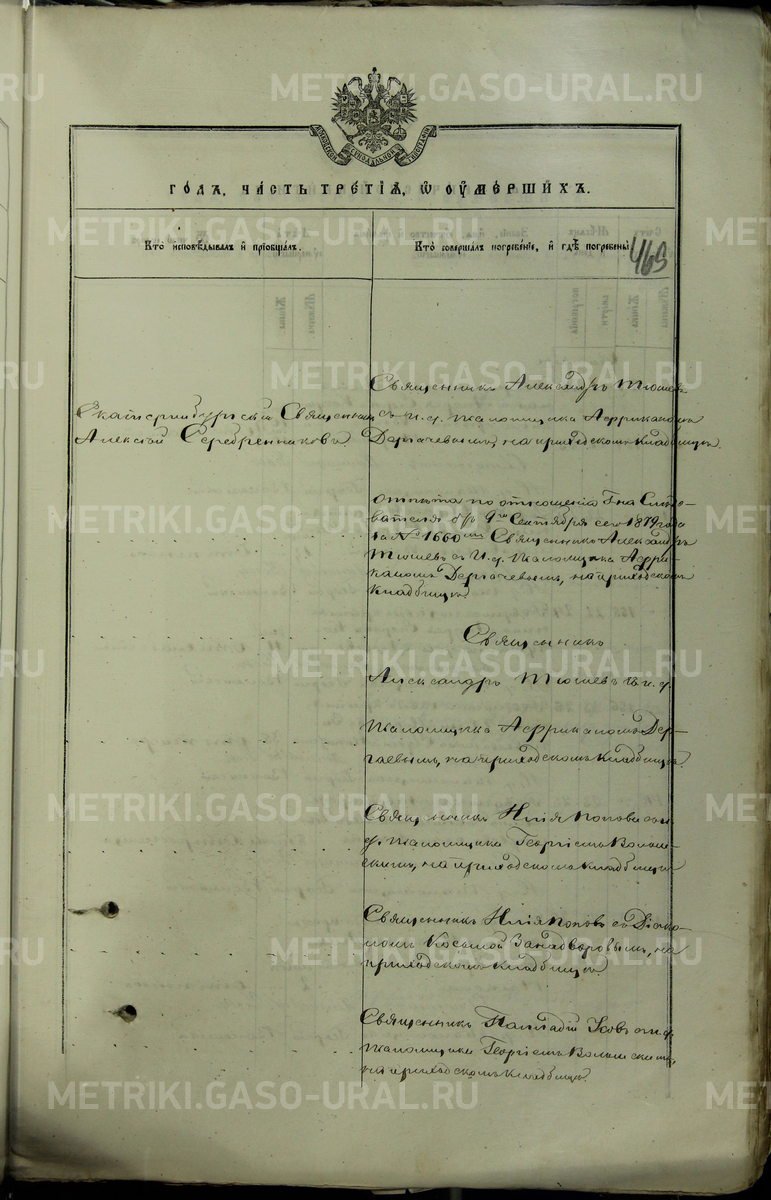 METRIKI.GASO-URAL.RU
МОСКОВСКОЙ СѴНОДАЛЬНОЙ ТИПОГРАФІИ
ГОДА, ЧАСТЬ ТРЕТІѦ, Ѡ ОУМЕРШИХЪ.
Кто исповѣдывалъ и прїобщалъ.
Кто совершалъ погребенїе, и гдѣ погребены.
465
Екатеринбургскій Священникъ
Алексѣй Серебренниковъ
Священникъ Александръ Тюшевъ
съ и. д. псаломщика Африканомъ
Дергачевымъ, на приходскомъ кладбищѣ.
отпѣта по отношенію Г-на Слѣдо-
вателя отъ 9го Сентября сего 1879 года
за № 1660мъ Священникъ Александръ
Тюшевъ съ И. д. псаломщика Афри-
каномъ Дергачевымъ, на приходскомъ
кладбищѣ.
Священникъ
Александръ Тюшевъ съ и. д.
псаломщика Африканомъ Дер-
гаевымъ, на приходскомъ кладбищѣ.
Священникъ Илія Поповъ съ и.
д. псаломщика Георгіемъ
на приходскомъ кладбищѣ
Священникъ Илія Поповъ съ Діако-
номъ Косьмой Занадворовымъ, на
приходскомъ кладбищѣ.
Священникъ Палладій съ и. д.
псаломщика Георгіемъ
на приходскомъ кладбищѣ.